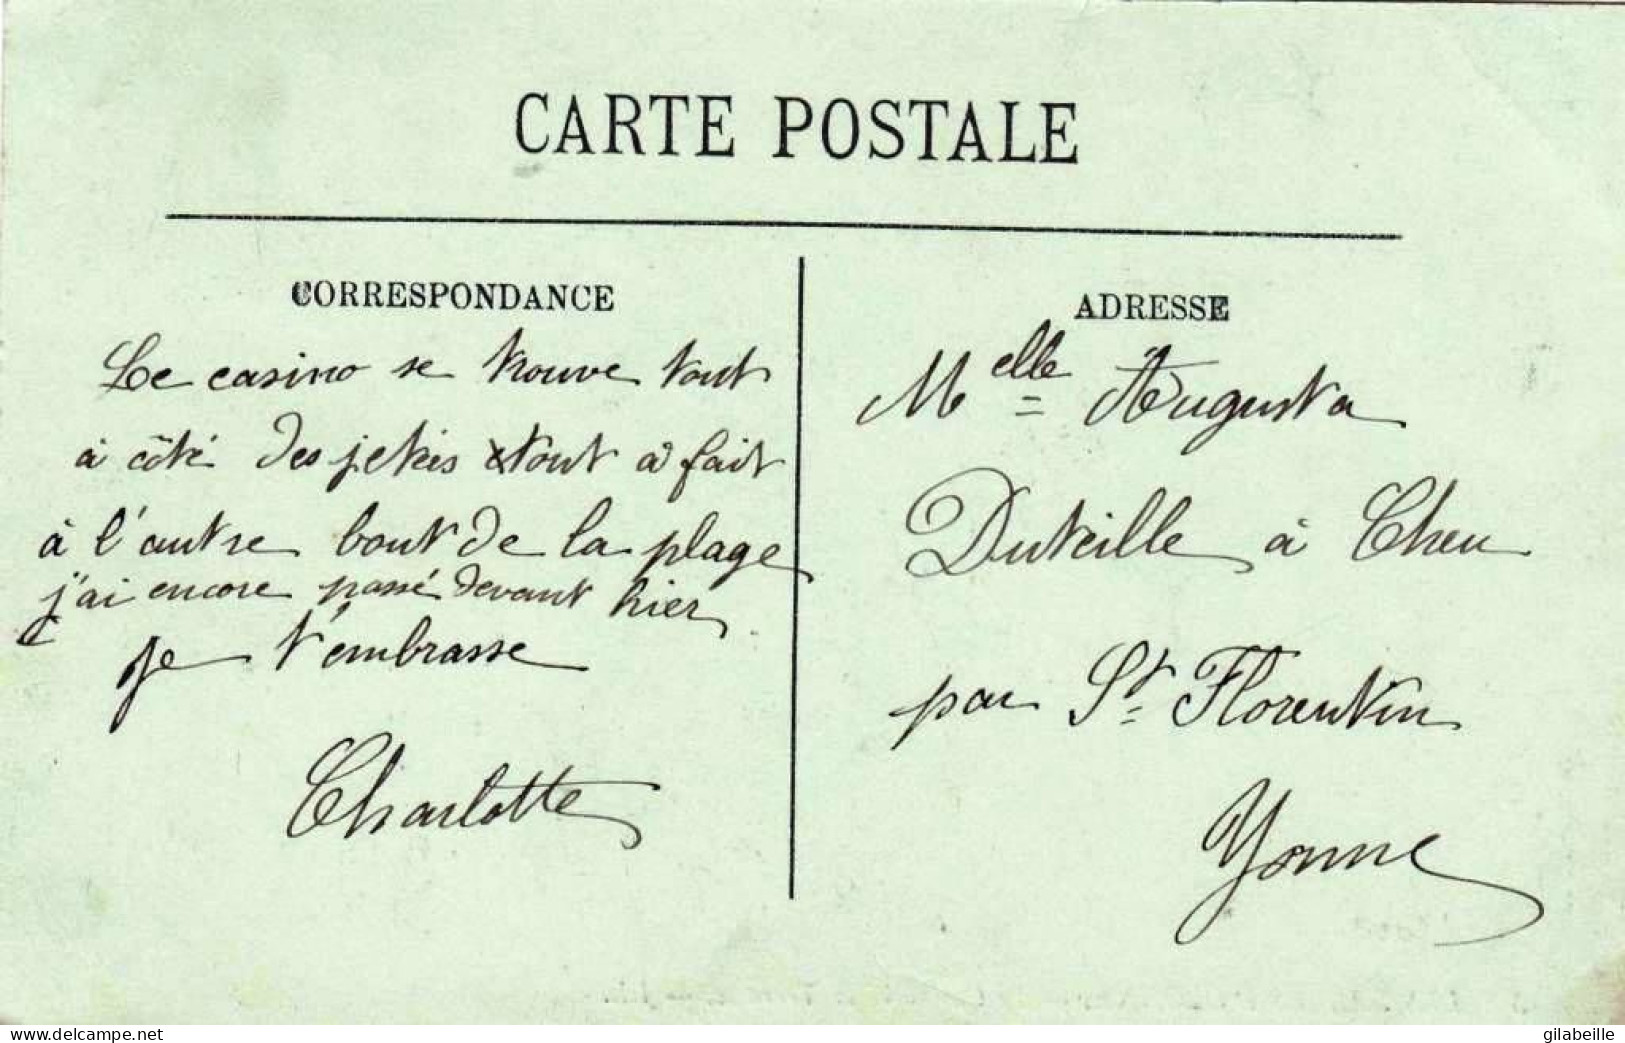 CARTE POSTALE
CORRESPONDANCE
Le casino se trouve tout
à côté des jetés tout à fait
à l'autre bout de la plage
j'ai encore passé devant hier
je t'embrasse
Charlotte
ADRESSE
Melle Augusta
Duteille à Cheu
par St Florentin
Yonne
delcampe.net
gilabeille